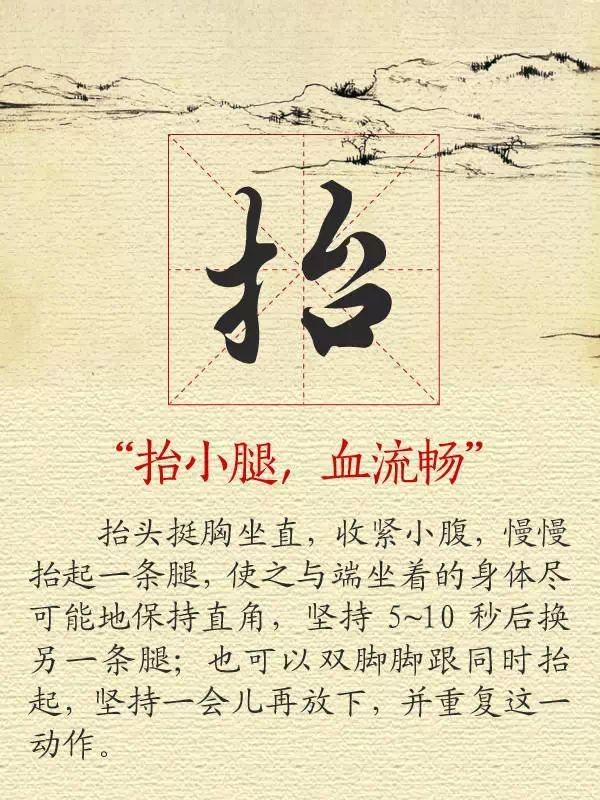 抬
“抬小腿，血流畅”
抬头挺胸坐直，收紧小腹，慢慢
抬起一条腿，使之与端坐着的身体尽
可能地保持直角，坚持 5~10 秒后换
另一条腿；也可以双脚脚跟同时抬
起，坚持一会儿再放下，并重复这一
动作。